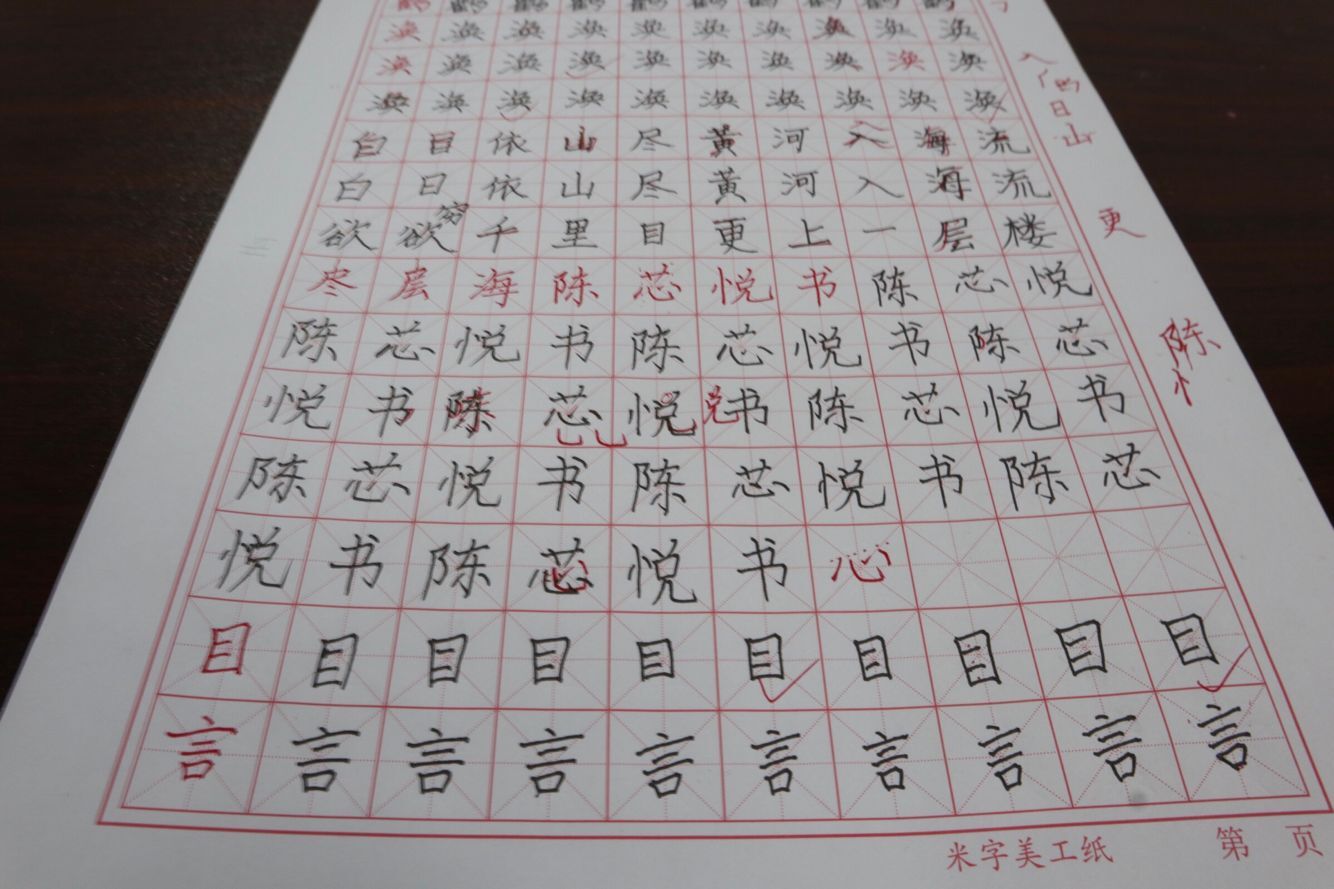 涣 涣 涣 涣 涣 涣 涣 涣 涣 涣
涣 涣 涣 涣 涣 涣 涣 涣 涣 涣
涣 涣 涣 涣 涣 涣 涣 涣 涣 涣
白 目 依 山 尽 黄 河 入 海 流
白 日 依 山 尽 黄 河 入 海 流
欲 欲 穷 千 里 目 更 上 一 层 楼
尽 层 海 陈 芯 悦 书 陈 芯 悦
陈 芯 悦 书 陈 芯 悦 书 陈 芯
悦 书 陈 芯 悦 兑 书 陈 芯 悦 书
陈 芯 悦 书 陈 芯 悦 书 陈 芯
悦 书 陈 芯 悦 书 心
目 目 目 目 目 目 目 目 目 目
言 言 言 言 言 言 言 言 言 言
入
日
山
更
陈
米字美工纸
第 页